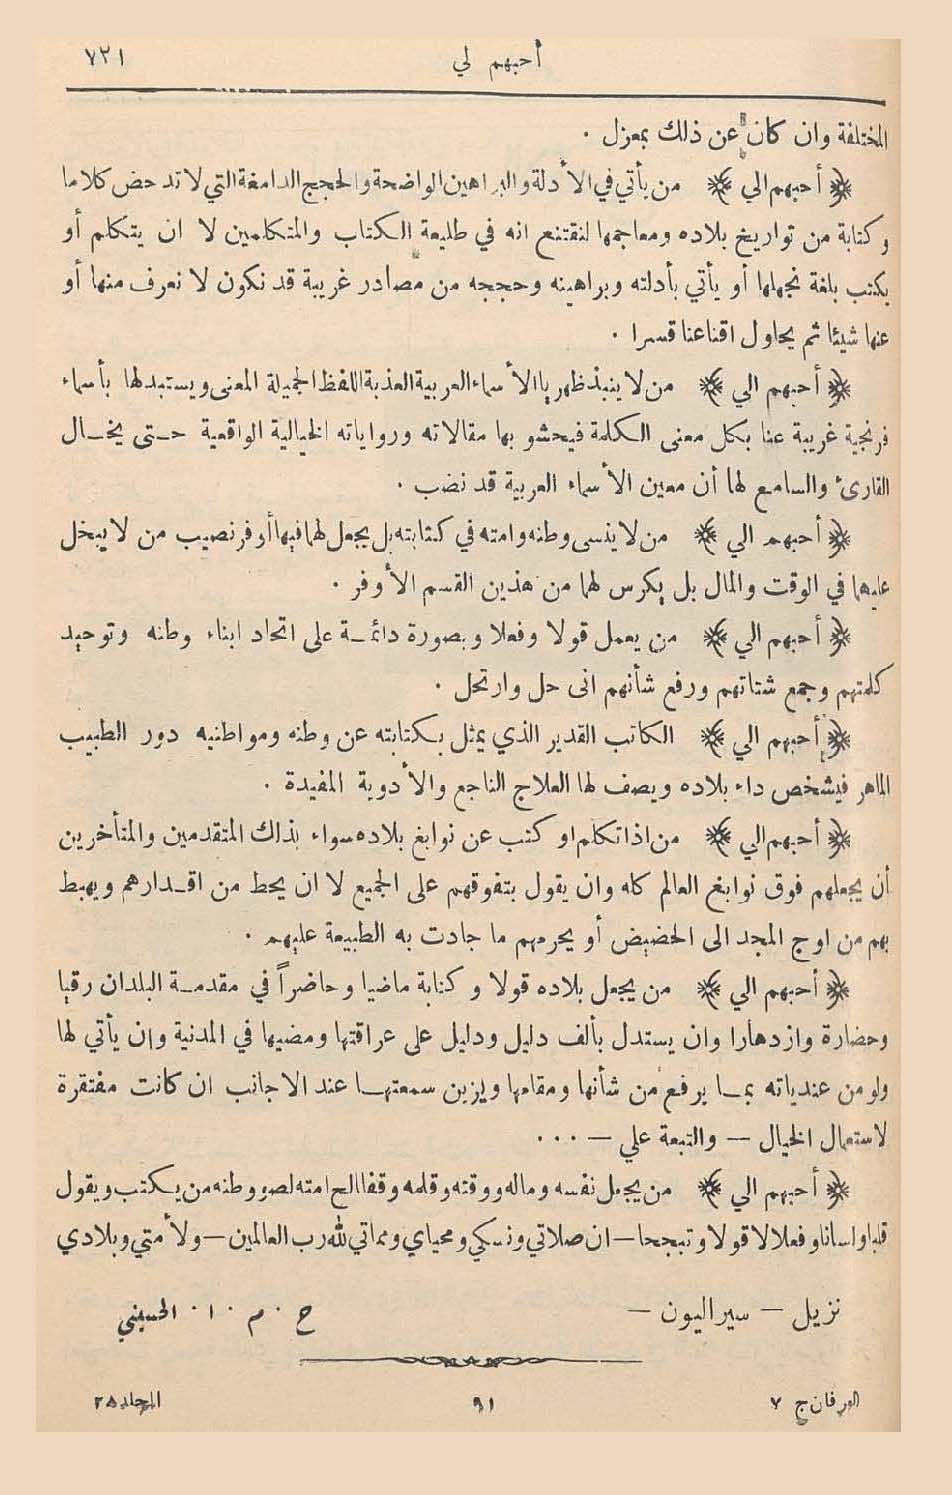 أحبهم لي ٧٢١
المختلفة وان كان عن ذلك بمعزل .
﴿ أحبهم الي ﴾ من يأتي في الأدلة والبراهين الواضحة والحجج الدامغة التي لا تدحض كلاما
وكتابة من تواريخ بلاده ومعاجمها لنقتنع انه في طليعة الكتاب والمتكلمين لا ان يتكلم أو
يكتب بلغة نجهلها أو يأتي بأدلته وبراهينه وحججه من مصادر غريبة قد نكون لا نعرف منها أو
عنها شيئا ثم يحاول اقناعنا قسرا .
﴿ أحبهم الي ﴾ من لا ينبذ ظهريا الأسماء العربية العذبة اللفظ الجميلة المعنى ويستبدلها بأسماء
فرنجية غريبة عنا بكل معنى الكلمة فيحشو بها مقالاته ورواياته الخيالية الواقعية حتى يخال
القارئ والسامع لها أن معين الأسماء العربية قد نضب .
﴿ أحبهم الي ﴾ من لا ينسى وطنه وامته في كتابته بل يجعل لهما فيها أوفر نصيب من لا يبخل
عليهما في الوقت والمال بل يكرس لهما من هذين القسم الأوفر .
﴿ أحبهم الي ﴾ من يعمل قولا وفعلا وبصورة دائمة على اتحاد ابناء وطنه وتوحيد
كلمتهم وجمع شتاتهم ورفع شأنهم انى حل وارتحل .
﴿ أحبهم الي ﴾ الكاتب القدير الذي يمثل بكتابته عن وطنه ومواطنيه دور الطبيب
الماهر فيشخص داء بلاده ويصف لها العلاج الناجع والأدوية المفيدة .
﴿ أحبهم الي ﴾ من اذا تكلم او كتب عن نوابغ بلاده سواء بذلك المتقدمين والمتأخرين
أن يجعلهم فوق نوابغ العالم كله وان يقول بتفوقهم على الجميع لا ان يحط من اقدارهم ويهبط
بهم من اوج المجد الى الحضيض أو يحرمهم ما جادت به الطبيعة عليهم .
﴿ أحبهم الي ﴾ من يجعل بلاده قولا وكتابة ماضيا وحاضراً في مقدمة البلدان رقيا
وحضارة وازدهارا وان يستدل بألف دليل ودليل على عراقتها ومضيها في المدنية وان يأتي لها
ولو من عندياته بما يرفع من شأنها ومقامها ويزين سمعتها عند الاجانب ان كانت مفتقرة
لاستعمال الخيال — والتبعة علي — ...
﴿ أحبهم الي ﴾ من يجعل نفسه وماله ووقته وقلمه وقفا لصالح امته ووطنه من يكتب ويقول
قلبا ولسانا وفعلا لا قولا وتبجحا — ان صلاتي ونسكي ومحياي ومماتي لله رب العالمين — ولأمتي وبلادي
نزيل — سيراليون — ح . م . ا . الحسيني
العرفان ج ٧ ٩١ المجلد ٢٥